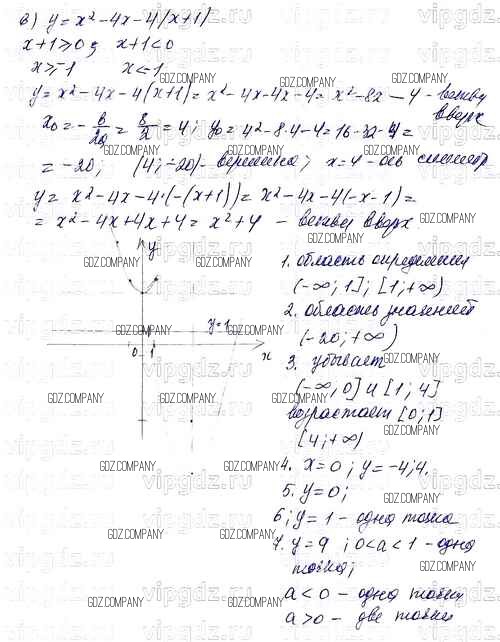 в) y = x² - 4x - 4|x+1|
x+1≥0; x+1<0
x≥-1 x<-1
y = x² - 4x - 4(x+1) = x² - 4x - 4x - 4 = x² - 8x - 4 - ветви вверх
x₀ = - в/2а = 8/2 = 4; y₀ = 4² - 8·4 - 4 = 16 - 32 - 4 =
= -20; (4; -20) - вершина; x = 4 - ось симметр
y = x² - 4x - 4·(-(x+1)) = x² - 4x - 4(-x-1) =
= x² - 4x + 4x + 4 = x² + 4 - ветви вверх
y
y=1
0 1 x
1. область определения
(-∞; 1]; [1; +∞)
2. область значений
(-20; +∞)
3. убывает
(-∞, 0] и [1; 4]
возрастает [0; 1]
[4; +∞)
4. x=0; y=-4; 4.
5. y=0;
6; y=1 - одна точка
7. y=9; 0<a<1 - одна
точка;
a<0 - одна точка
a>0 - две точки
GDZ.COMPANY
vipgdz.ru